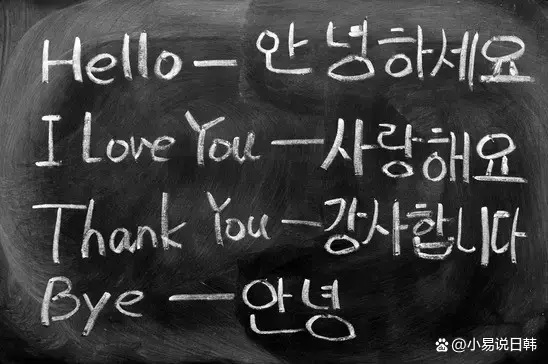 Hello – 안녕하세요
I Love You – 사랑해요
Thank You – 감사합니다
Bye – 안녕
小易说日韩